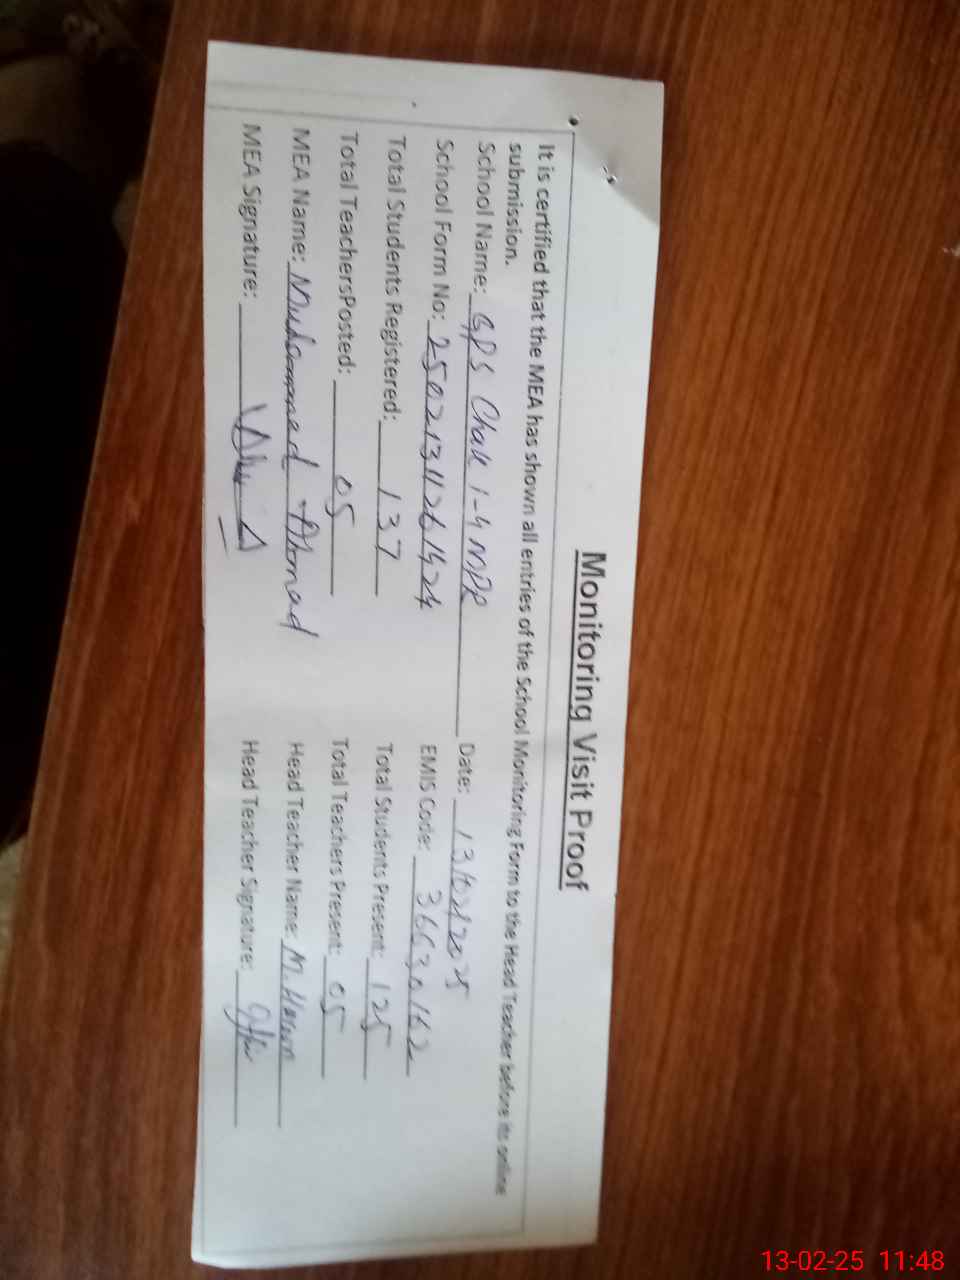 Monitoring Visit Proof
It is certified that the MEA has shown all entries of the School Monitoring Form to the Head Teacher before its online
submission.
School Name: GPS Chak 1-4 MPR Date: 13/02/2025
School Form No: EMIS Code: 36630162
Total Students Registered: 137 Total Students Present: 125
Total TeachersPosted: 05 Total Teachers Present: 05
MEA Name: Muhammad Ahmad Head Teacher Name: M.
MEA Signature: Head Teacher Signature:
13-02-25 11:48